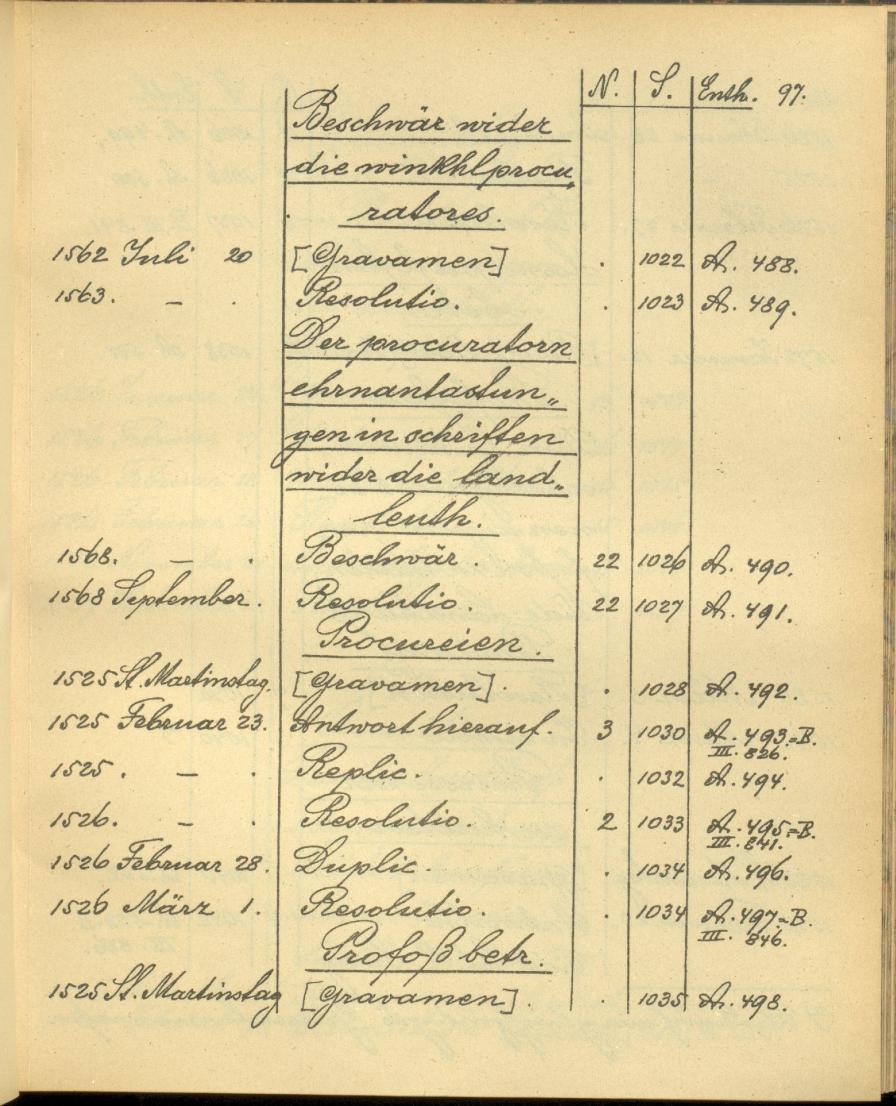 N. S. Enth. 97.
Beschwär wider
die winkhlprocu„
ratores.
1562 Juli 20 [Gravamen] . 1022 A. 488.
1563. – . Resolutio. . 1023 A. 489.
Der procuratorn
ehrnantastun„
gen in schriften
wider die land„
leuth.
1568. – . Beschwär 22 1026 A. 490.
1568 September. Resolutio. 22 1027 A. 491.
Procureien.
1525 St. Martinstag. [Gravamen]. . 1028 A. 492.
1525 Februar 23. Antwort hierauf. 3 1030 A. 493.=B.
III. 826.
1525. – . Replic. . 1032 A. 494.
1526. – . Resolutio. 2 1033 A. 495.=B.
III. 841.
1526 Februar 28. Duplic. . 1034 A. 496.
1526 März 1. Resolutio. . 1034 A. 497.=B.
III. 846.
Profoß betr.
1525 St. Martinstag [Gravamen]. . 1035 A. 498.